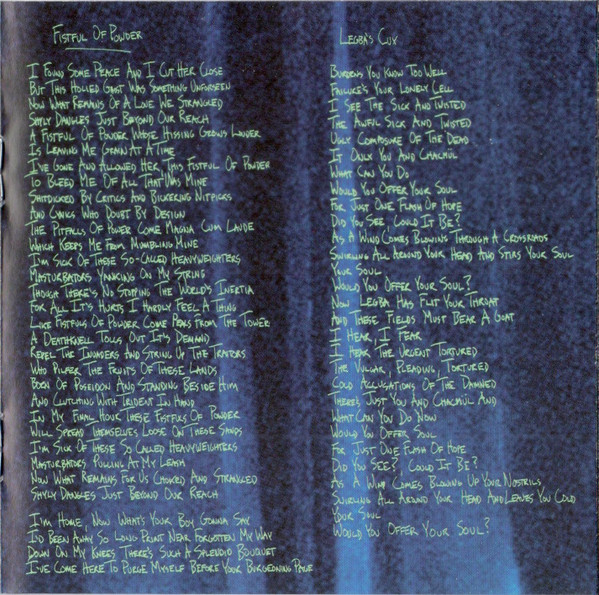 Fistful Of Powder
I Found Some Peace And I Cut Her Close
But This Holled Gast Was Something Unforseen
Now What Remains Of A Love We Strangled
Shyly Dangles Just Beyond Our Reach
A Fistful Of Powder Whose Hissing Grows Louder
Is Leaving Me Grain At A Time
I've Gone And Allowed Her This Fistful Of Powder
To Bleed Me Of All That Was Mine
Shitdicked By Critics And Bickering Nitpicks
And Cynics Who Doubt By Design
The Pitfalls Of Power Come Magna Cum Laude
Which Keeps Me From Mumbling Mine
I'm Sick Of These So-Called Heavyweighters
Masturbators Yanking On My String
Though There's No Stopping The World's Inertia
For All It's Hurts I Hardly Feel A Thing
Like Fistfuls Of Powder Come Peals From The Tower
A Deathknell Tolls Out It's Demand
Repel The Invaders And String Up The Traitors
Who Pilfer The Fruits Of These Lands
Born Of Poseidon And Standing Beside Him
And Clutching With Trident In Hand
In My Final Hour These Fistfuls Of Powder
Will Spread Themselves Loose On These Sands
I'm Sick Of These So Called Heavyweighters
Masturbators Pulling At My Leash
Now What Remains For Us Choked And Strangled
Shyly Dangles Just Beyond Our Reach
I'm Home, Now What's Your Boy Gonna Say
I'd Been Away So Long Print Near Forgotten My Way
Down On My Knees There's Such A Splendid Bouquet
I've Come Here To Purge Myself Before Your Burgeoning Page
Legba's Cux
Burdens You Know Too Well
Failure's Your Lonely Cell
I See The Sick And Twisted
The Awful Sick And Twisted
Ugly Composure Of The Dead
It Only You And Chacmül
What Can You Do
Would You Offer Your Soul
For Just One Flash Of Hope
Did You See Could It Be?
As A Wind Comes Blowing Through A Crossroads
Swirling All Around Your Head And Stirs Your Soul
Your Soul
Would You Offer Your Soul?
Now Legba Has Flit Your Throat
And These Fields Must Bear A Goat
I Hear, I Fear
I Hear The Urgent Tortured
The Vulgar, Pleading, Tortured
Cold Accusations Of The Damned
There's Just You And Chacmül And
What Can You Do Now
Would You Offer Soul
For Just One Flash Of Hope
Did You See? Could It Be?
As A Wind Comes Blowing Up Your Nostrils
Swirling All Around Your Head And Leaves You Cold
Your Soul
Would You Offer Your Soul?